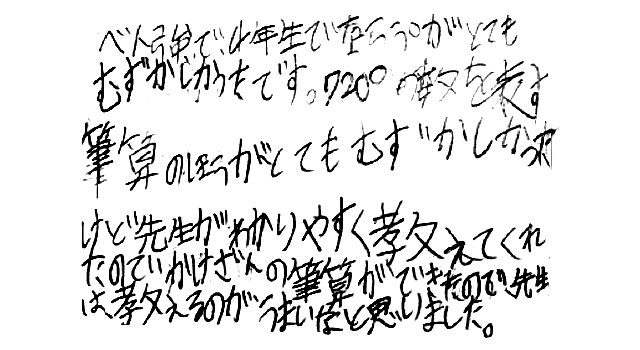 べん強で、4年生でならう。がとても
むずかしかったです。720°の数を表す
筆算のほうがとてもむずかしかった
けど先生がわかりやすく教えてくれ
たのでかけざんの筆算ができたので、先生
は、教えるのがうまいなと思いました。